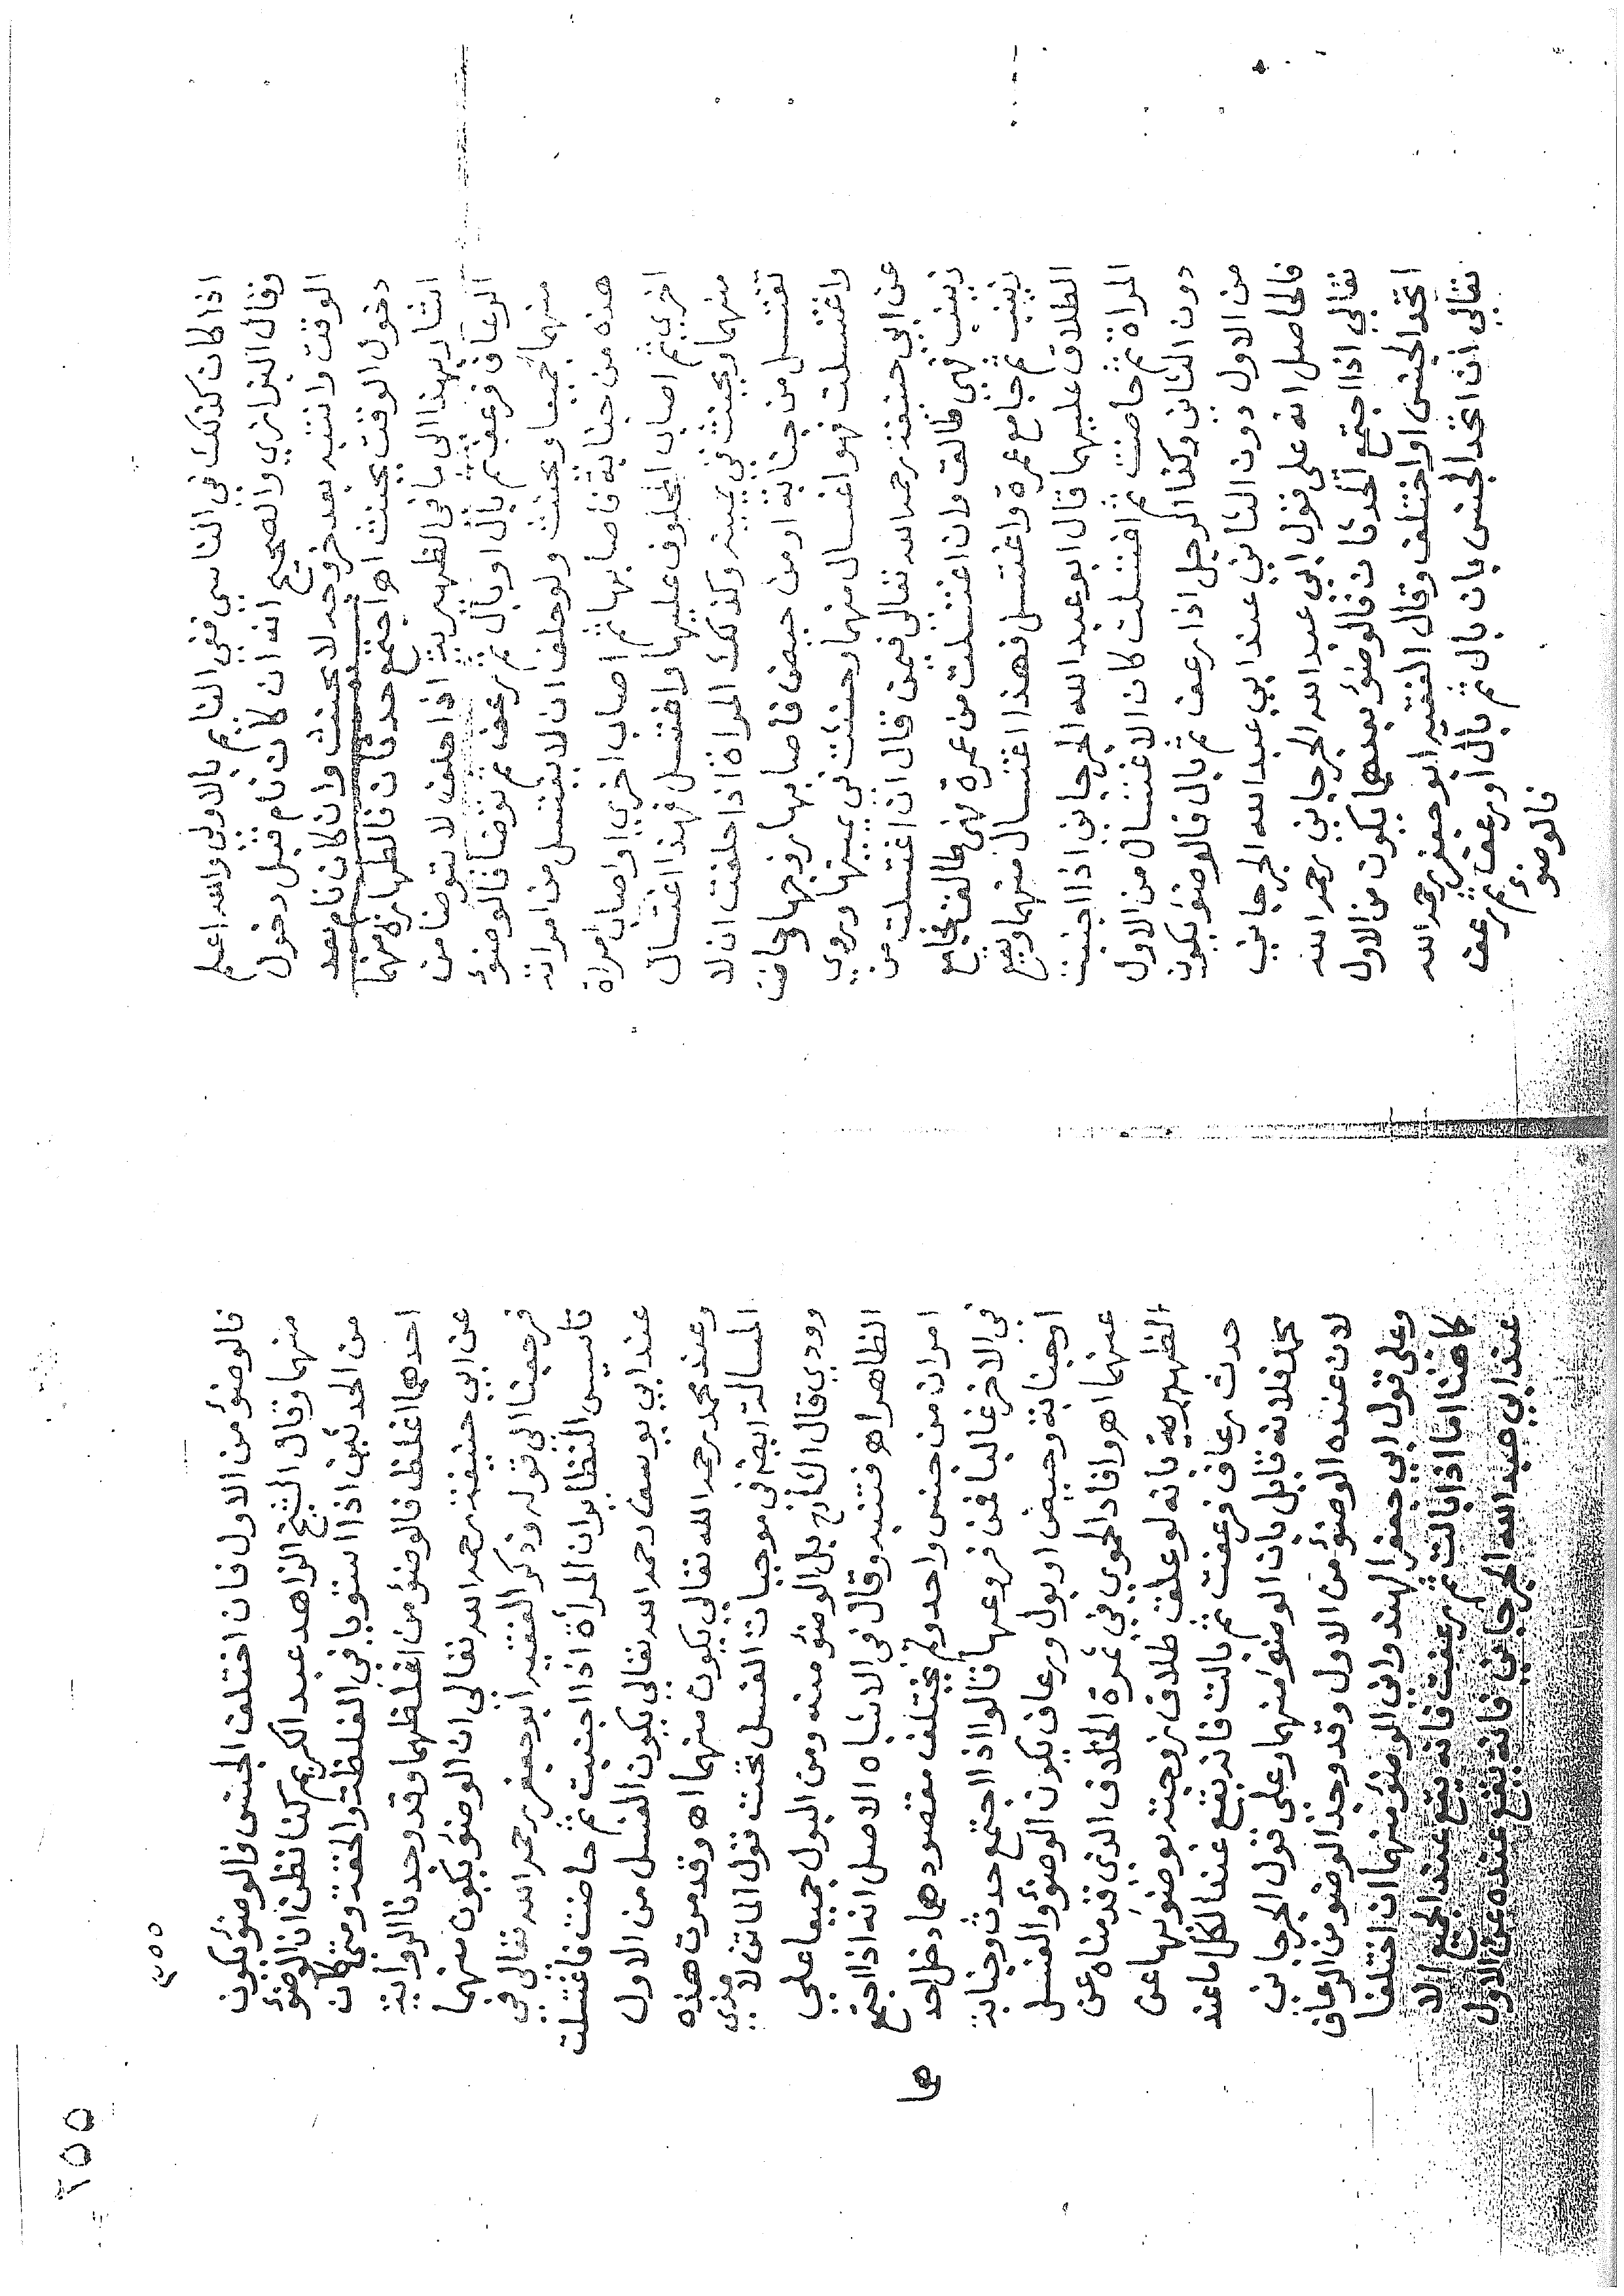 اذا كان كذلك في الناسي ففي النايم بالاولي والله اعلم
وقال البزازي والصحيح انه ان كان نام قبل دخول
الوقت وانتبه بعد خروجه لا يحنث وان كان نام بعد
دخول الوقت يحنث اهـ اجتمع حدثان فالطهارة منهما
اشار بهذا الى ما في الظهيرية اذا حلف لا يتوضا من
الرعاف فرعف ثم بال او بال ثم رعف ثم توضا فالوضوء
منهما جميعا ويحنث ولو حلف ان لا يغتسل من امراته
هذه من جنابة فاصابها ثم اصاب اخري او اصاب امراة
اخري ثم اصاب المحلوف عليها واغتسل فهذا اغتسال
منهما ويحنث في يمينه وكذلك المراة اذا حلفت ان لا
تغتسل من جنابة او من حيض فاصابها زوجها وحاضت
واغتسلت فهو اغتسال منهما وحنثت في يمينها وروي
عن ابي حنيفة رحمه الله تعالى فيمن قال ان اغتسلت من
زينب فهي طالق وان اغتسلت من عمرة فهي طالق فجامع
زينب ثم جامع عمرة واغتسل فهذا اغتسال منهما ويقع
الطلاق عليهما قال ابو عبد الله الجرجاني اذا اجنبت
المراة ثم حاضت ثم اغتسلت كان الاغتسال من الاول
دون الثاني وكذا الرجل اذا رعف ثم بال فالوضوء يكون
من الاول دون الثاني عند ابي عبد الله الجرجاني
فالحاصل انه على قول ابي عبد الله الجرجاني رحمه الله
تعالي اذا اجتمع الحدثان فالوضوء بعدهما يكون من الاول
اتحد الجنس او اختلف وقال الفقيه ابو جعفر رحمه الله
تعالي ان اتحد الجنس بان بال ثم بال او رعف ثم رعف
فالوضوء
٢٥٥
٢٥٥
فالوضوء من الاول فان اختلف الجنس فالوضوء يكون
منهما وقال الشيخ الزاهد عبد الكريم كنا نظن ان الوضوء
من الحدثين اذا استويا في الغلظة والخفة ومتى كان
احدهما اغلظ فالوضوء من اغلظهما وقد وجدنا الرواية
عن ابي حنيفة رحمه الله تعالى ان الوضوء يكون منهما
فرجعنا الى قوله وذكر الفقيه ابو جعفر رحمه الله تعالى في
تاسيس النظاير ان المرأة اذا اجنبت ثم حاضت فاغتسلت
عند ابي يوسف رحمه الله تعالى يكون الغسل من الاول
وعند محمد رحمه الله تعالى يكون منهما اهـ وقد مرت هذه
المسالة ايضا في موجبات الغسل تحت قول الماتن لا مذي
وودي قال الشارح بل الوضوء منه ومن البول جميعا علي
الظاهر اهـ فتنبه وقال في الاشباه الاصل انه اذا اجتمع
امران من جنس واحد ولم يختلف مقصودهما دخل احدهما
في الاخر غالبا فمن فروعها قالوا اذا اجتمع حدث وجنابة
او جنابة وحيض او بول ورعاف يكون الوضوء والغسل
عنهما اهـ وافاد الحموي في ثمرة الخلاف الذي قدمناه عن
الظهيرية بانه لو علق طلاق زوجته بوضوئها عن
حدث رعاف فرعفت ثم بالت فانه يقع عند الكل ما عند
محمد فلانه قايل بان الوضوء منهما وعلي قول الجرجاني
لان عنده الوضوء من الاول وقد وجد الوضوء من الرعاف
وعلى قول ابي جعفر الهندواني الوضوء منهما ان اختلفا
كما هنا اما اذا بالت ثم رعفت فانه يقع عند الجميع الا
عند ابي عبد الله الجرجاني فانه يقع عنده عن الاول